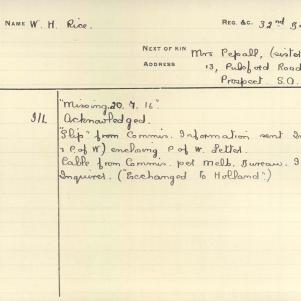 NAME W. H. Rice. REG. &C. 32nd
NEXT OF KIN Mrs Pepall, (sister
ADDRESS 13, Pulsford Road
Prospect. S.A.
"Missing 20. 7. 16"
I/L Acknowledged.
"Slip" from Commis. Information sent
& P. of W) enclosing P. of W. Letter.
Cable from Commis. per Melb. Bureau. I
Inquirer. ("Exchanged to Holland")